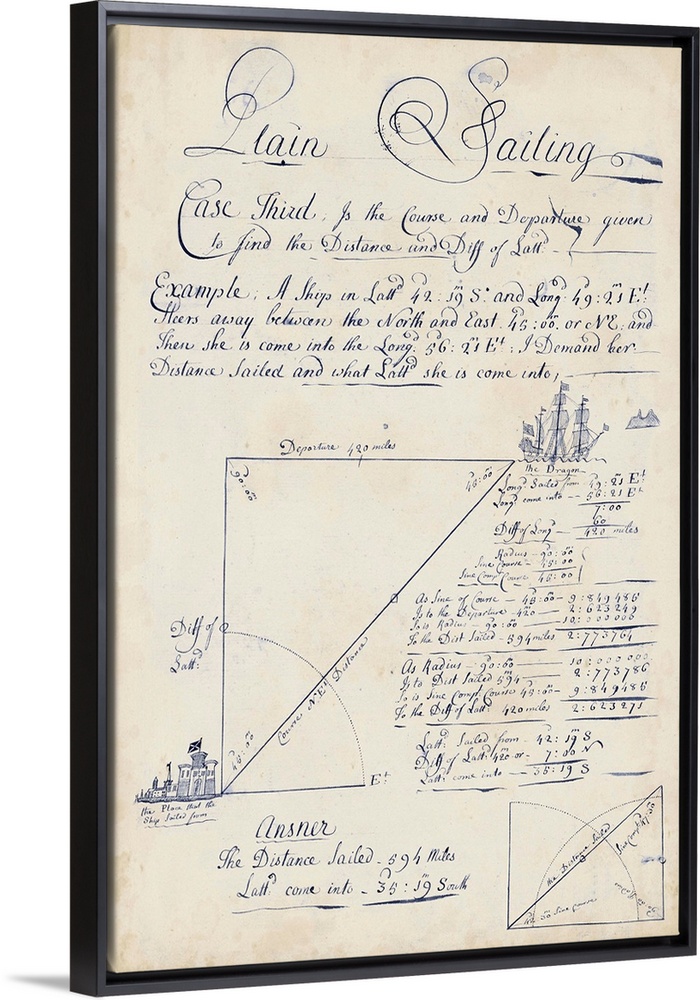 Plain Sailing
Case Third, Is the Course and Departure given
to find the Distance and Diff of Lattd
Example, A Ship in Lattd 42:19 S. and Longd 49:21 Et
Steers away between the North and East 45:00 or NE; and
Then she is come into the Longd 56:21 Et; I Demand her
Distance Sailed and what Lattd she is come into,
Departure 420 miles
90:00
45:00
the Dragon
Longd Sailed from 49:21 Et
Longd come into 56:21 Et
7:00
60
Diff of Longd 420 miles
Radius - 90:00
Sine Course - 45:00
Sine Compt Course 45:00
As Sine of Course - 45:00 - 9:849485
Is to the Departure 420 - 2:623249
So is Radius - 90:00 - 10:000000
To the Dist Sailed - 594 miles 2:773764
As Radius - 90:00 - 10:000000
Is to Dist Sailed 594 - 2:773786
So is Sine Compt Course 45:00 - 9:849485
To the Diff of Lattd 420 miles 2:623271
Lattd Sailed from - 42:19 S
Diff of Lattd 420 or - 7:00 N
Lattd come into - 35:19 S
Diff of
Lattd
Course NEt Distance
45:00
Et
the Place that the
Ship Sailed from
Answer
The Distance Sailed - 594 Miles
Lattd come into - 35:19 South
the Distance Sailed
Sine Compt
Sine Course